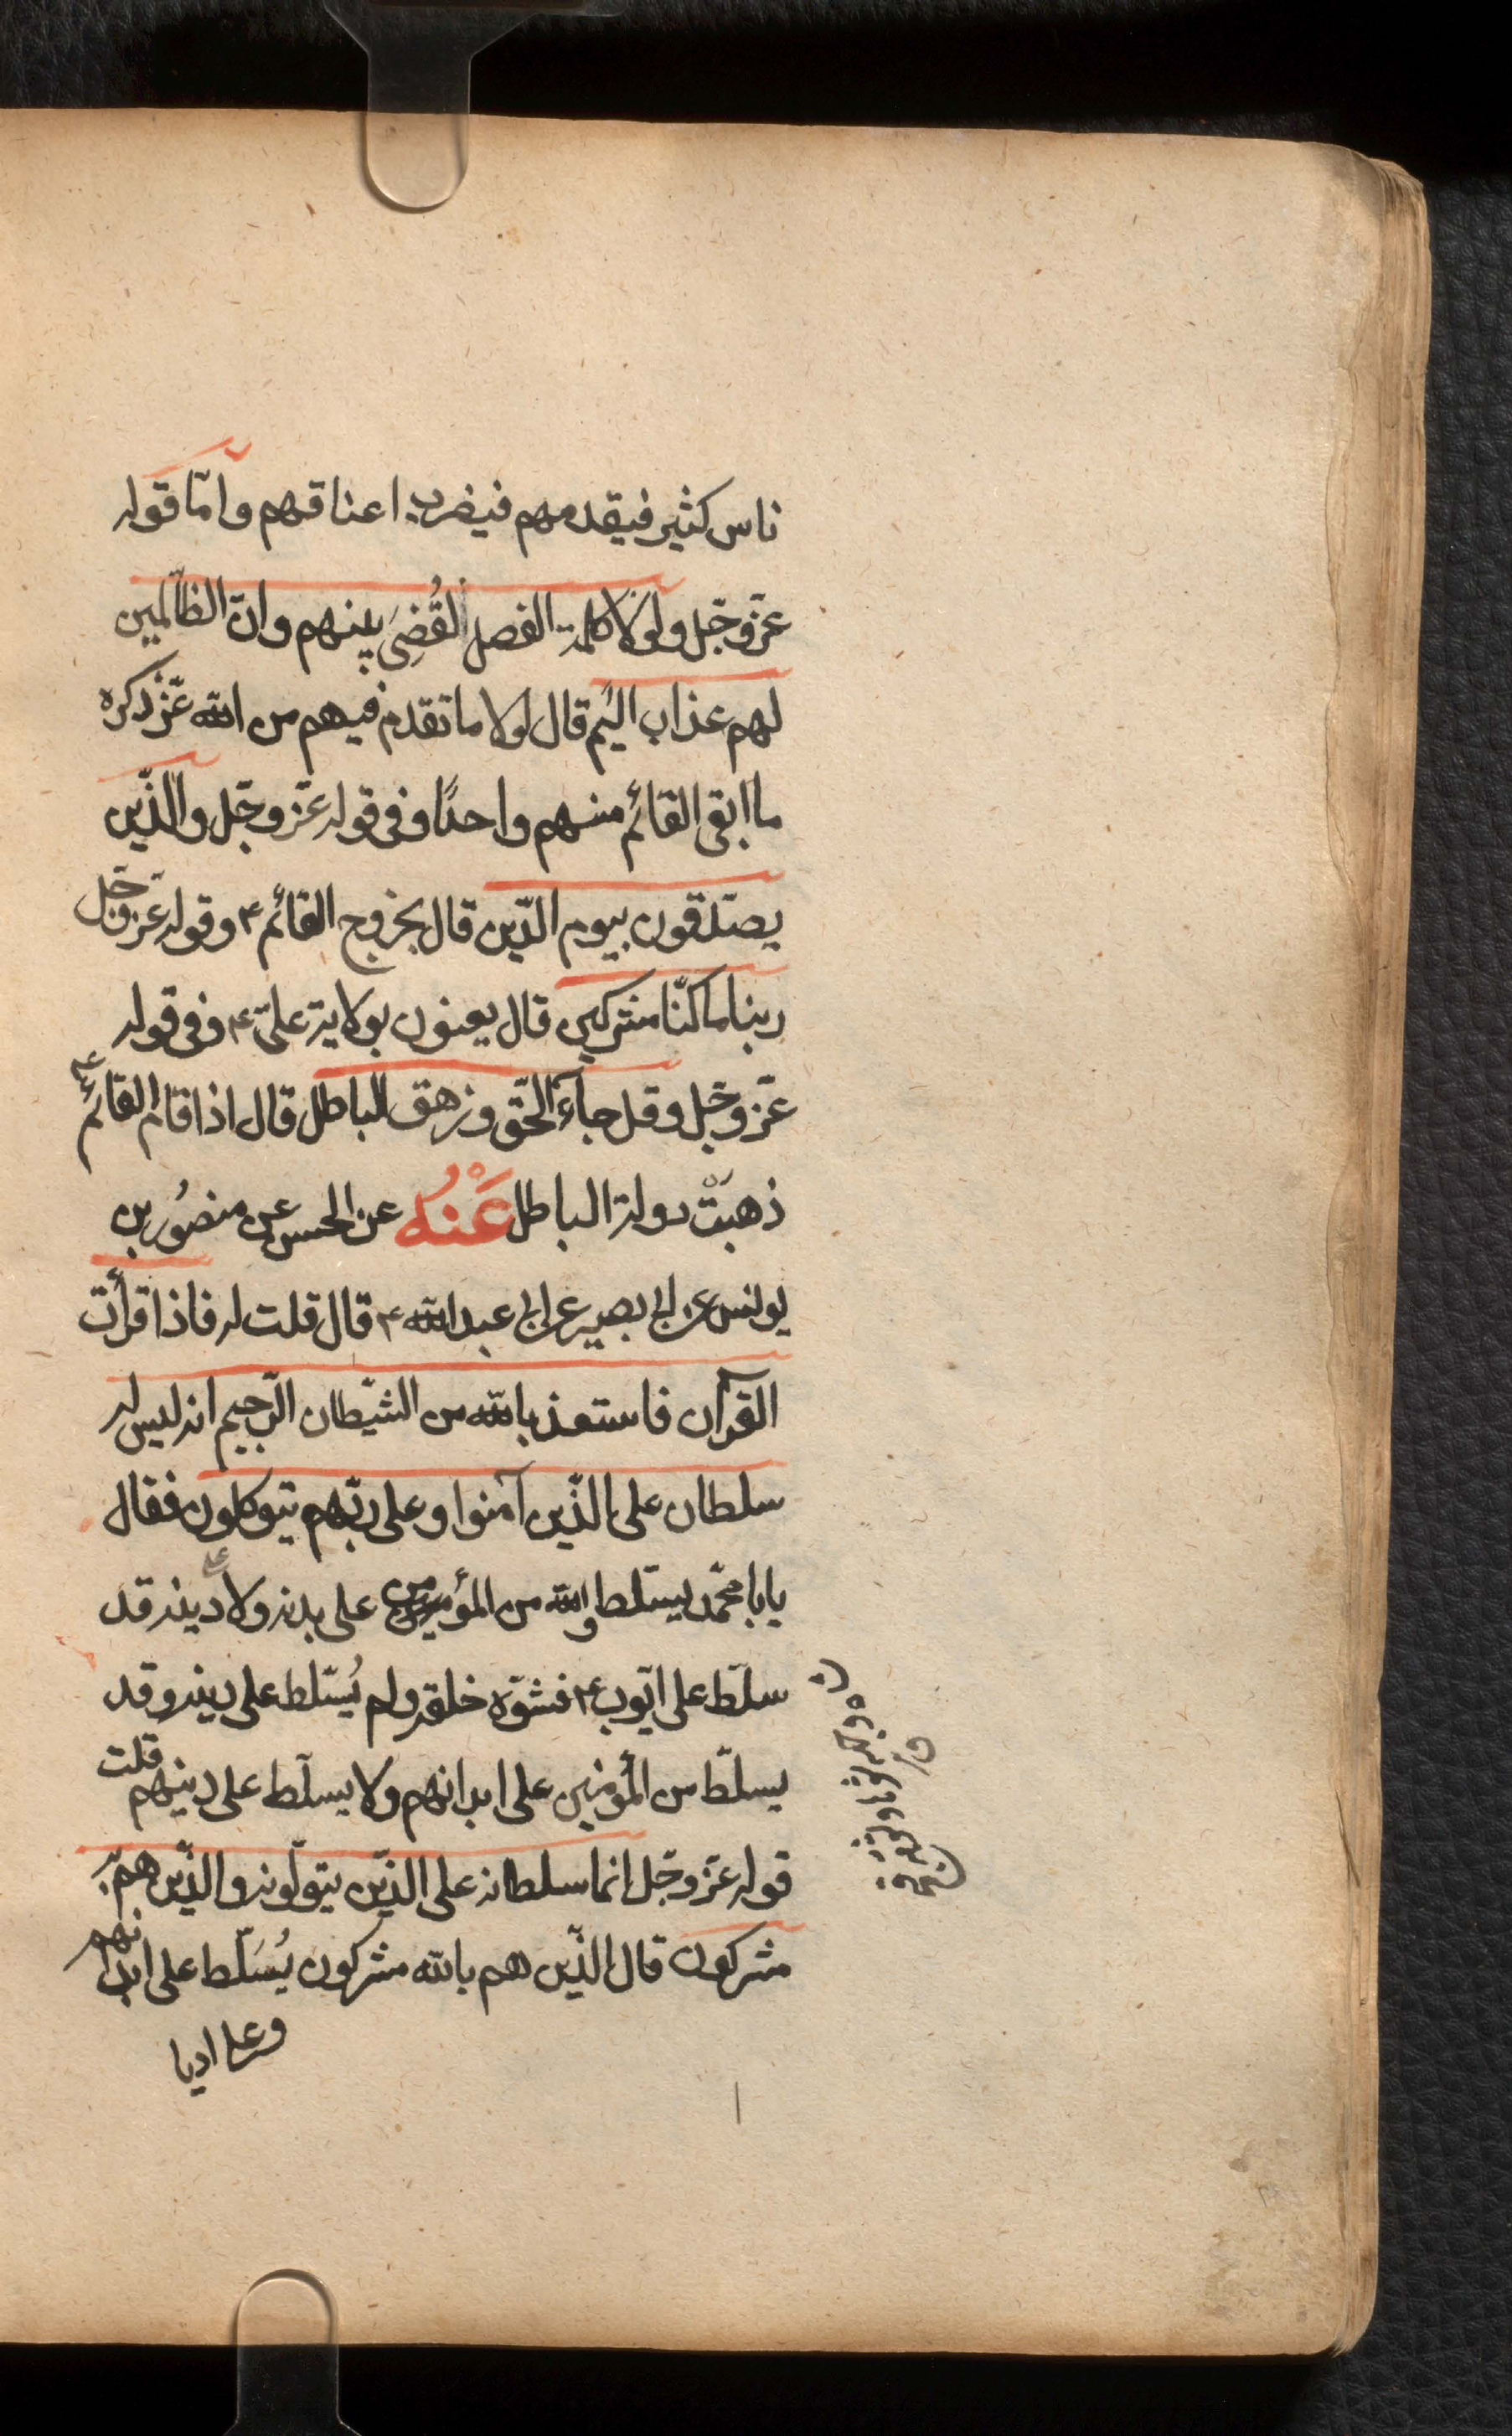 ناس كثير فيقدمهم فيضرب اعناقهم وامّا قوله
عزّ وجّل ولولا كلمة الفصل لقُضِىَ بينهم وانّ الظالمين
لهم عذاب اليم قال لولا ما تقدم فيهم من الله عزّ ذكره
ما ابقى القائم منهم واحدًا وفى قوله عزّ وجّل والّذين
يصدّقون بيوم الدّين قال بخروج القائم ع وقوله عزّ وجّل
ربنا ما كنّا مشركين قال يعنون بولاية علىّ ع وفى قوله
عزّ وجّل وقل جآء الحّق وزهق الباطل قال اذا قام القائم ع
ذهبَتْ دولة الباطل عَنْهُ عن الحسن عن منصُور بن
يونس عن ابى بصير عن ابى عبد الله ع قال قلت له فاذا قرأت
القرآن فاستعذ بالله من الشيّطان الرّجيم انه ليس له
سلطان على الّذين آمنوا وعلى ربّهم يتوكلون فقال
يابا محّمد يسّلط والله من المؤمنين على بدنه ولا دينه قد
سلّط على ايّوب ع فشوّه خلقه ولم يُسّلط على دينه وقد
يسلّط من المؤمنين على ابدانهم ولا يسلّط على دينهم قلت
قوله عزّ وجّل انما سلطانه على الذّين يتوّلونه والذّين هم به
مشركون قال الذّين هم بالله مشركون يُسَلّط على ابدانهم
وعلى اديا